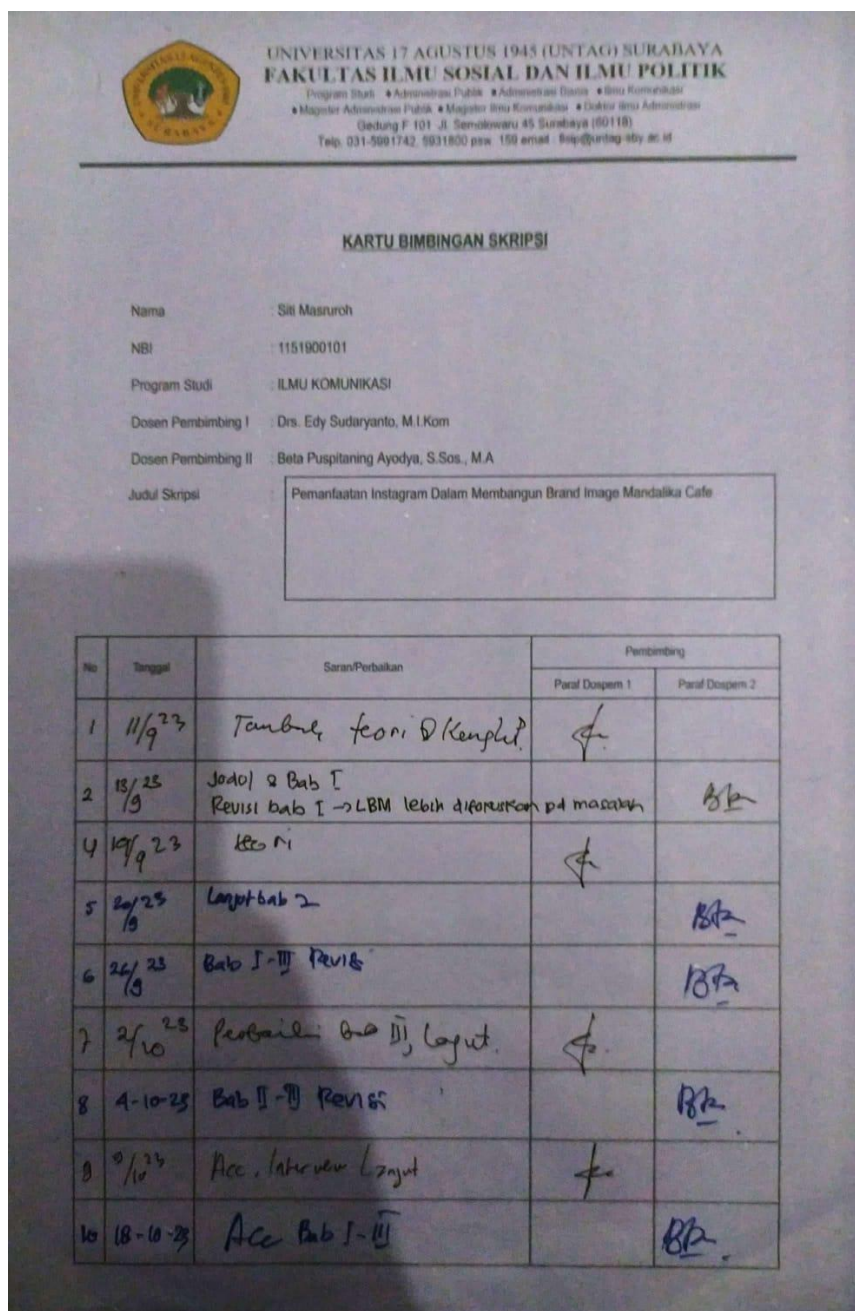 UNIVERSITAS 17 AGUSTUS 1945 (UNTAG) SURABAYA
FAKULTAS ILMU SOSIAL DAN ILMU POLITIK
Program Studi • Administrasi Publik • Administrasi Bisnis • Ilmu Komunikasi
• Magister Administrasi Publik • Magister Ilmu Komunikasi • Doktor Ilmu Administrasi
Gedung F 101 Jl. Semolowaru 45 Surabaya (60118)
Telp. 031-5991742, 5931800 psw. 159 email : fisip@untag-sby.ac.id
KARTU BIMBINGAN SKRIPSI
Nama : Siti Masruroh
NBI : 1151900101
Program Studi : ILMU KOMUNIKASI
Dosen Pembimbing I : Drs. Edy Sudaryanto, M.I.Kom
Dosen Pembimbing II : Beta Puspitaning Ayodya, S.Sos., M.A
Judul Skripsi : Pemanfaatan Instagram Dalam Membangun Brand Image Mandalika Cafe
No Tanggal Saran/Perbaikan Pembimbing
Paraf Dospem 1 Paraf Dospem 2
1 11/9 23 teori
2 13/9 23 Judul & Bab I
Revisi bab I → LBM lebih difokuskan pd masalah
4 19/9 23 teori
5 20/9 23 Lanjut bab 2
6 26/9 23 Bab I - III Revisi
7 2/10 23 Bab III, Lanjut.
8 4-10-23 Bab II - III Revisi
9 9/10 23 Acc. Interview Lanjut
10 18-10-23 Acc Bab I - III